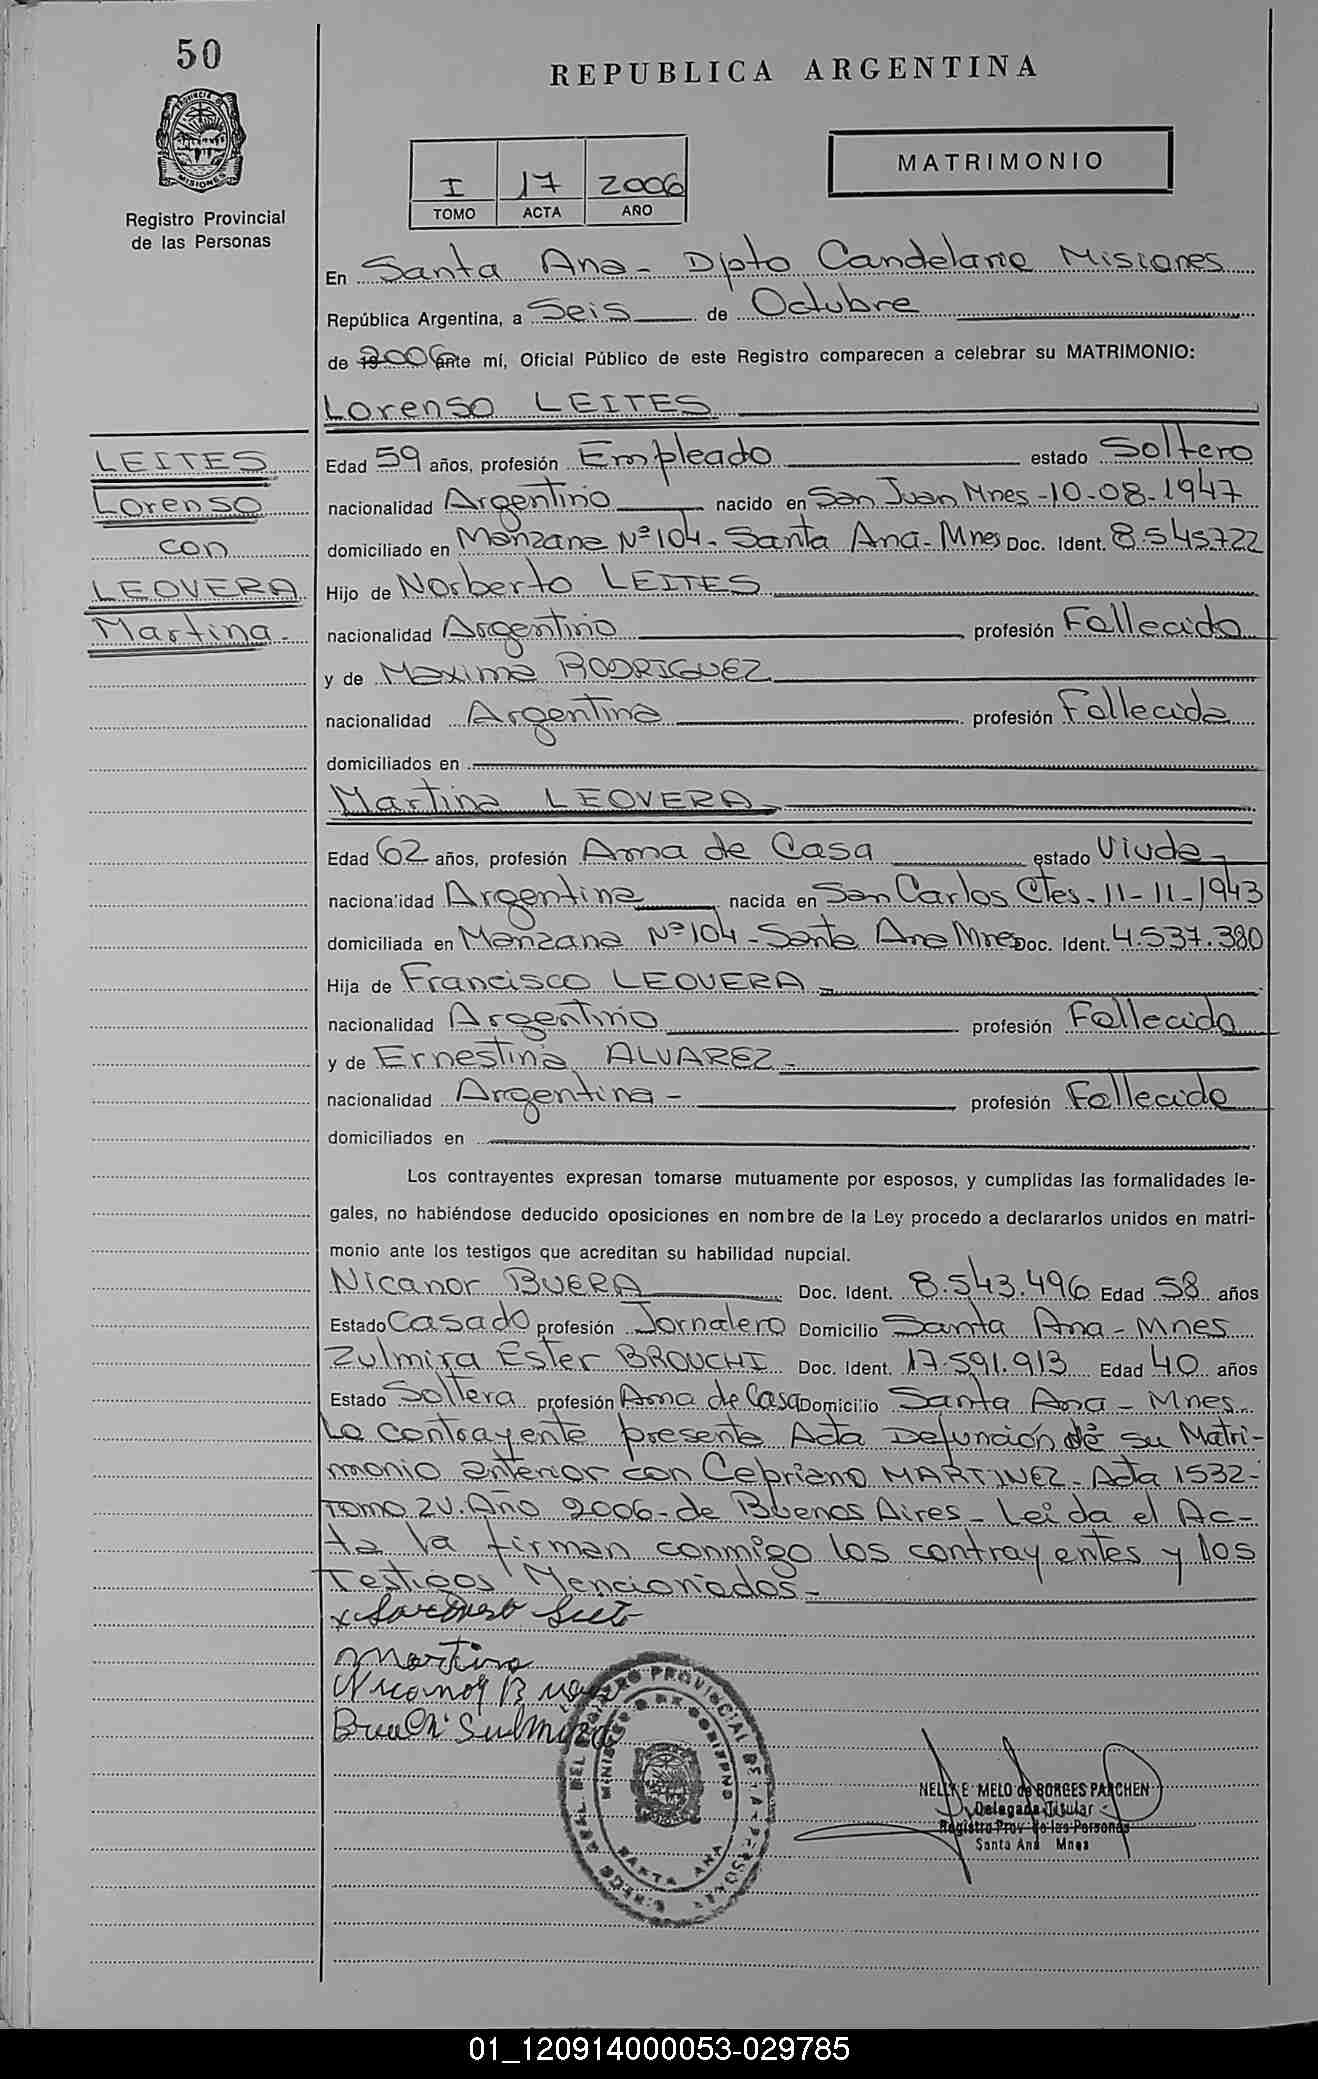 50
REPUBLICA ARGENTINA
PROVINCIA DE MISIONES
Registro Provincial
de las Personas
MATRIMONIO
I 17 2006
TOMO ACTA AÑO
En Santa Ana - Dpto Candelaria Misiones
República Argentina, a Seis de Octubre
de 2006 ante mí, Oficial Público de este Registro comparecen a celebrar su MATRIMONIO:
Lorenso LEITES
LEITES
Lorenso
con
LEOVERA
Martina.
Edad 59 años, profesión Empleado estado Soltero
nacionalidad Argentino nacido en San Juan Mnes - 10-08-1947
domiciliado en Manzana Nº 104 - Santa Ana - Mnes Doc. Ident. 8.545.722
Hijo de Norberto LEITES
nacionalidad Argentino profesión Fallecido
y de Maxima RODRIGUEZ
nacionalidad Argentina profesión Fallecida
domiciliados en
Martina LEOVERA
Edad 62 años, profesión Ama de Casa estado Viuda -
nacionalidad Argentina nacida en San Carlos Ctes - 11-11-1943
domiciliada en Manzana Nº 104 - Santa Ana Mnes Doc. Ident. 4.537.380
Hija de Francisco LEOVERA -
nacionalidad Argentino profesión Fallecido
y de Ernestina ALVAREZ -
nacionalidad Argentina - profesión Fallecida
domiciliados en
Los contrayentes expresan tomarse mutuamente por esposos, y cumplidas las formalidades le-
gales, no habiéndose deducido oposiciones en nombre de la Ley procedo a declararlos unidos en matri-
monio ante los testigos que acreditan su habilidad nupcial.
Nicanor BUERA Doc. Ident. 8.543.496 Edad 58 años
Estado Casado profesión Jornalero Domicilio Santa Ana - Mnes
Zulmira Ester BROUCHI Doc. Ident. 17.591.913 Edad 40 años
Estado Soltera profesión Ama de Casa Domicilio Santa Ana - Mnes.
La contrayente presenta Acta Defunción de su Matri-
monio anterior con Cepriano MARTINEZ - Acta 1532 -
Tomo 2U. Año 2006 - de Buenos Aires - Leida el Ac-
ta la firman conmigo los contrayentes y los
Testigos Mencionados -
Martina
Nicanor Buera
NELLY E. MELO de BORGES PARCHEN
Delegada Titular
Registro Prov. de las Personas
Santa Ana Mnes
SANTA ANA
01_120914000053-029785